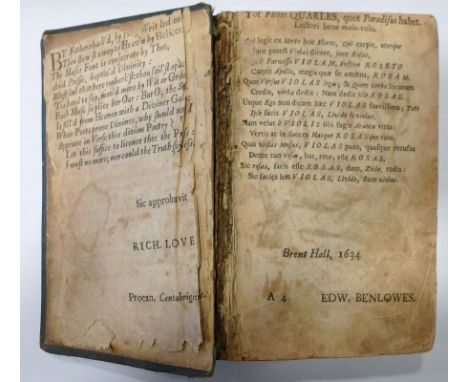 BY Fathers back'd, by Writ led on
Thou shew'st a way to Heav'n by Helicon:
The Muses Font is consecrate by Thee,
And Poesie, baptiz'd Divinity:
Blest soul that here embark'st: thou sail'st apace,
'Tis hard to say, mov'd more by Wit or Grace
Each Muse so plies her Oar: But O, the
Is fill'd from Heaven with a Diviner
When Poets prove Divines, why should
Approve in Verse this divine Poetry
Let this suffice to licence thee the Press:
I must no more, nor could the Truth say less.
Sic approbavit
RICH. LOVE
Procan. Cantabrigiensis.
Tot Flores QUARLES, quot Paradisus habet.
Lectori bene male-volo.
Qui legit ex horto hoc Flores, qui carpit, uterque
Jure potest Violas dicere, jure Rosas,
è Parnasso VIOLAM, Pæstive ROSETO
Carpit Apollo, magis quæ sit amœna, ROSAM.
Quot Versus VIOLAS legis; & quem verba locutum
Credis, verba dedit: Nam dedit ille ROSAS.
Utque Ego non dicam hæc VIOLAS suavissima; Tute
Ipse facis VIOLAS, Livide si violas.
Nam velut è VIOLIS sibi sugit Aranea virus:
Vertis ita in succos Hasque ROSASque tuos.
Quas violas Musas, VIOLAS puto, quasque recusas
Dente tuo rosas, has, reor, esse ROSAS,
Sic rosas, facis esse ROSAS, dum, Zoile, rodis:
Sic facis has VIOLAS, Livide, dum violas.
Brent Hall, 1634
A 4 EDW. BENLOWES.